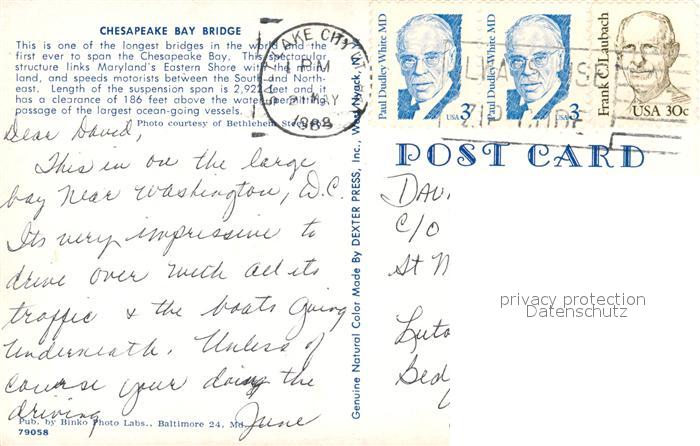 CHESAPEAKE BAY BRIDGE
This is one of the longest bridges in the world and the
first ever to span the Chesapeake Bay. This spectacular
structure links Maryland's Eastern Shore with the main-
land, and speeds motorists between the South and North-
east. Length of the suspension span is 2,922 feet and it
has a clearance of 186 feet above the water permitting
passage of the largest ocean-going vessels.
Photo courtesy of Bethlehem Steel
Dear David,
This in on the large
bay near Washington, D.C.
Its very impressive to
drive over with all its
traffic & the boats going
underneath. Unless of
course your doing the
driving
June
Pub. by Binko Photo Labs., Baltimore 24, Md.
79058
Genuine Natural Color Made By DEXTER PRESS, Inc., West Nyack, N.Y.
SALT LAKE CITY
PM
MAY
1988
Paul Dudley White, MD
USA 3
Paul Dudley White, MD
USA 3
Frank C. Laubach
USA 30c
POST CARD
DAVI
C/O
St
Luto
Bed
privacy protection
Datenschutz